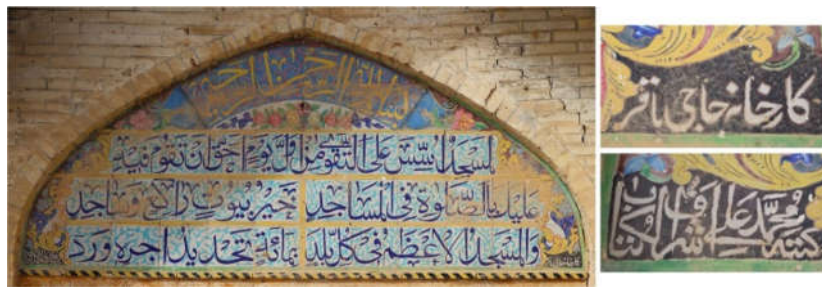 بسم الله الرحمن الرحیم
لمسجد اسس علی التقوی من اول یوم احق ان تقوم فیه
علیك بالصلوة فی المساجد خیر بیوت راكع وساجد
والمسجد الاعظم فی كل بلد بمائة تحدید اجره ورد
كارخانه حاجی باقر
كتبه محمد علی اشرف الكتاب